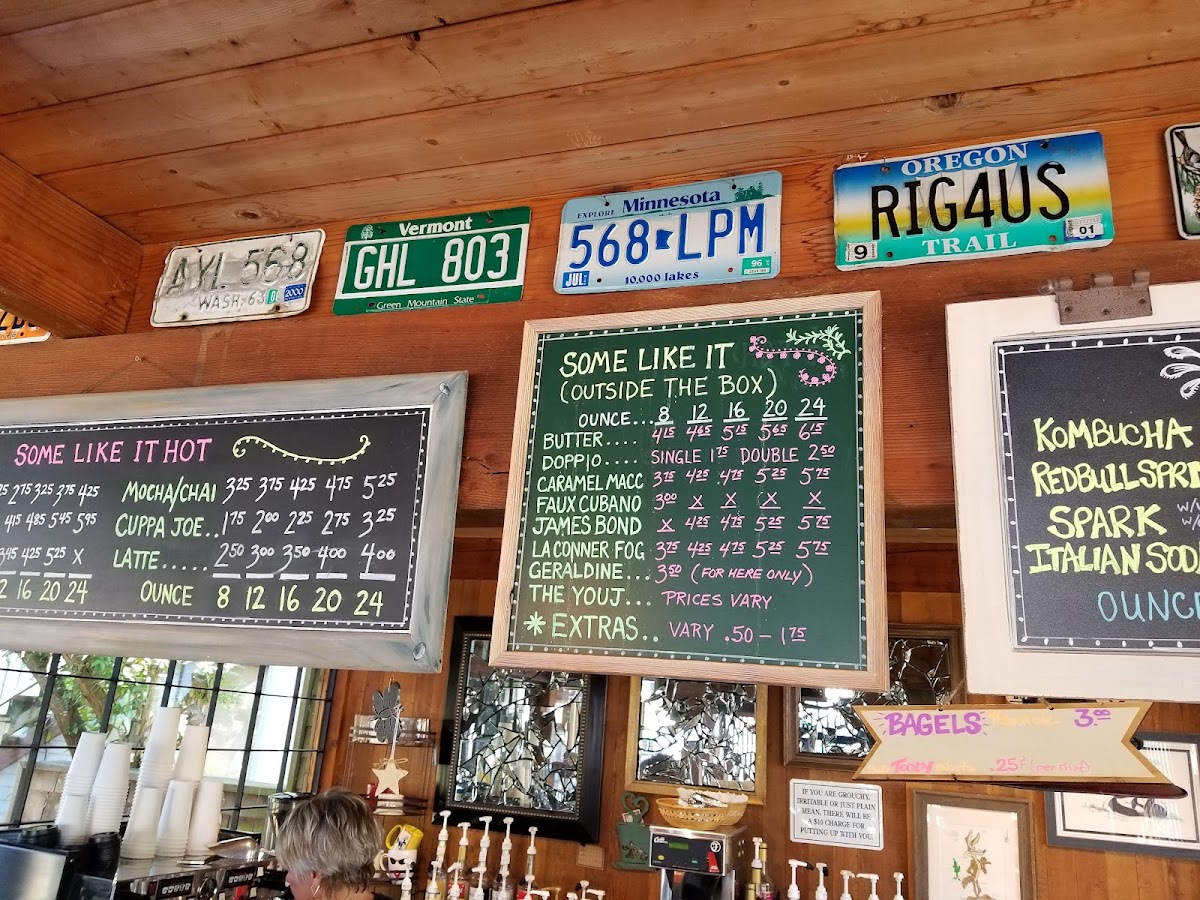 AYL 568
WASH-63
2000
Vermont
GHL 803
Green Mountain State
EXPLORE Minnesota
568 LPM
JUL 10,000 lakes 96
OREGON
RIG4US
9 TRAIL 01
SOME LIKE IT HOT
2.75 3.25 3.75 4.25 MOCHA/CHAI 3.25 3.75 4.25 4.75 5.25
4.15 4.85 5.45 5.95 CUPPA JOE.. 1.75 2.00 2.25 2.75 3.25
3.45 4.25 5.25 X LATTE..... 2.50 3.00 3.50 4.00 4.00
16 20 24 OUNCE 8 12 16 20 24
SOME LIKE IT
(OUTSIDE THE BOX)
OUNCE... 8 12 16 20 24
BUTTER.... 4.15 4.65 5.15 5.65 6.15
DOPPIO.... SINGLE 1.75 DOUBLE 2.50
CARAMEL MACC 3.75 4.25 4.75 5.25 5.75
FAUX CUBANO 3.00 X X X X
JAMES BOND X 4.25 4.75 5.25 5.75
LA CONNER FOG 3.75 4.25 4.75 5.25 5.75
GERALDINE... 3.50 (FOR HERE ONLY)
THE YOUJ... PRICES VARY
* EXTRAS.. VARY .50 - 1.75
KOMBUCHA
REDBULL
SPARK W/
ITALIAN
BAGELS 3.00
TODDY .25¢ (per shot)
IF YOU ARE GROUCHY,
IRRITABLE OR JUST PLAIN
MEAN, THERE WILL BE
A $10 CHARGE FOR
PUTTING UP WITH YOU.